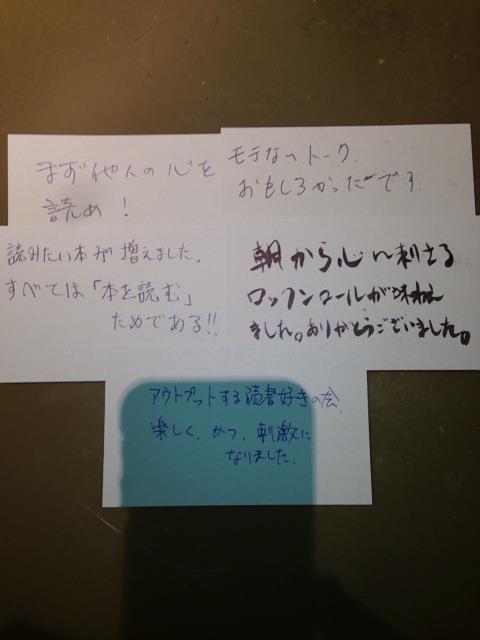 まず他人の心を
読め！
モテないトーク
おもしろかったーです。
読みたい本が増えました。
すべては「本を読む」
ためである!!
朝から心に刺さる
ロックンロールが
ました。ありがとうございました。
アウトプットする読書好きの会。
楽しく、かつ、刺激に
なりました。